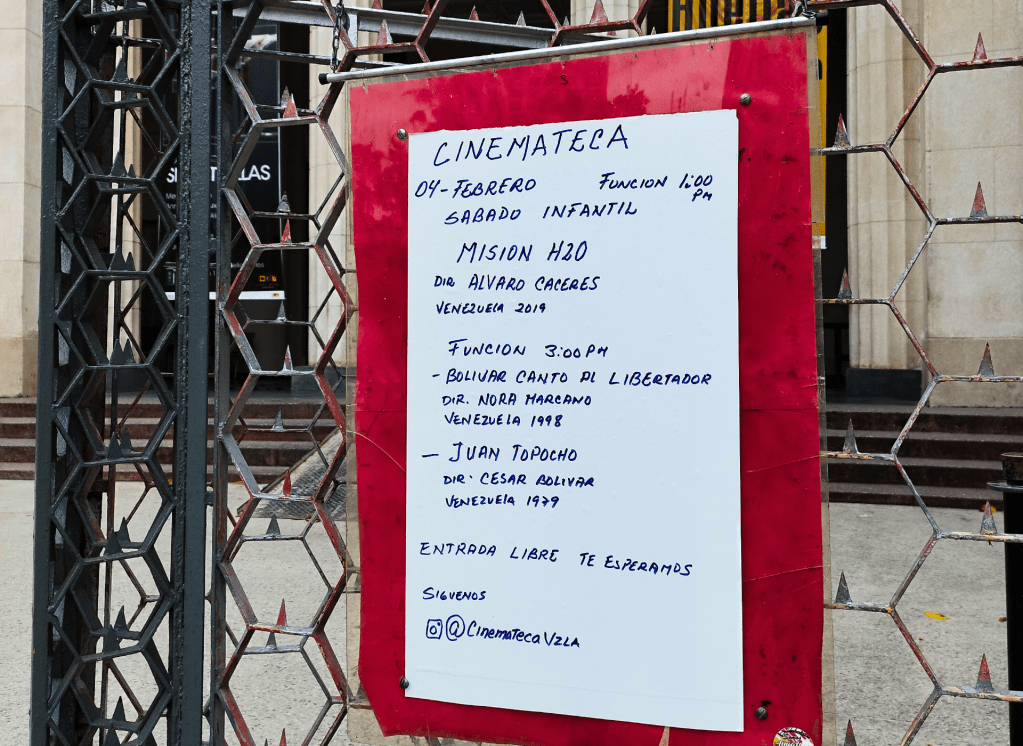 CINEMATECA
04-FEBRERO FUNCION 1:00 PM
SABADO INFANTIL
MISION H2O
DIR ALVARO CACERES
VENEZUELA 2019
FUNCION 3:00 PM
- BOLIVAR CANTO AL LIBERTADOR
DIR. NORA MARCANO
VENEZUELA 1998
- JUAN TOPOCHO
DIR. CESAR BOLIVAR
VENEZUELA 1979
ENTRADA LIBRE TE ESPERAMOS
SIGUENOS
@CinematecaVzla